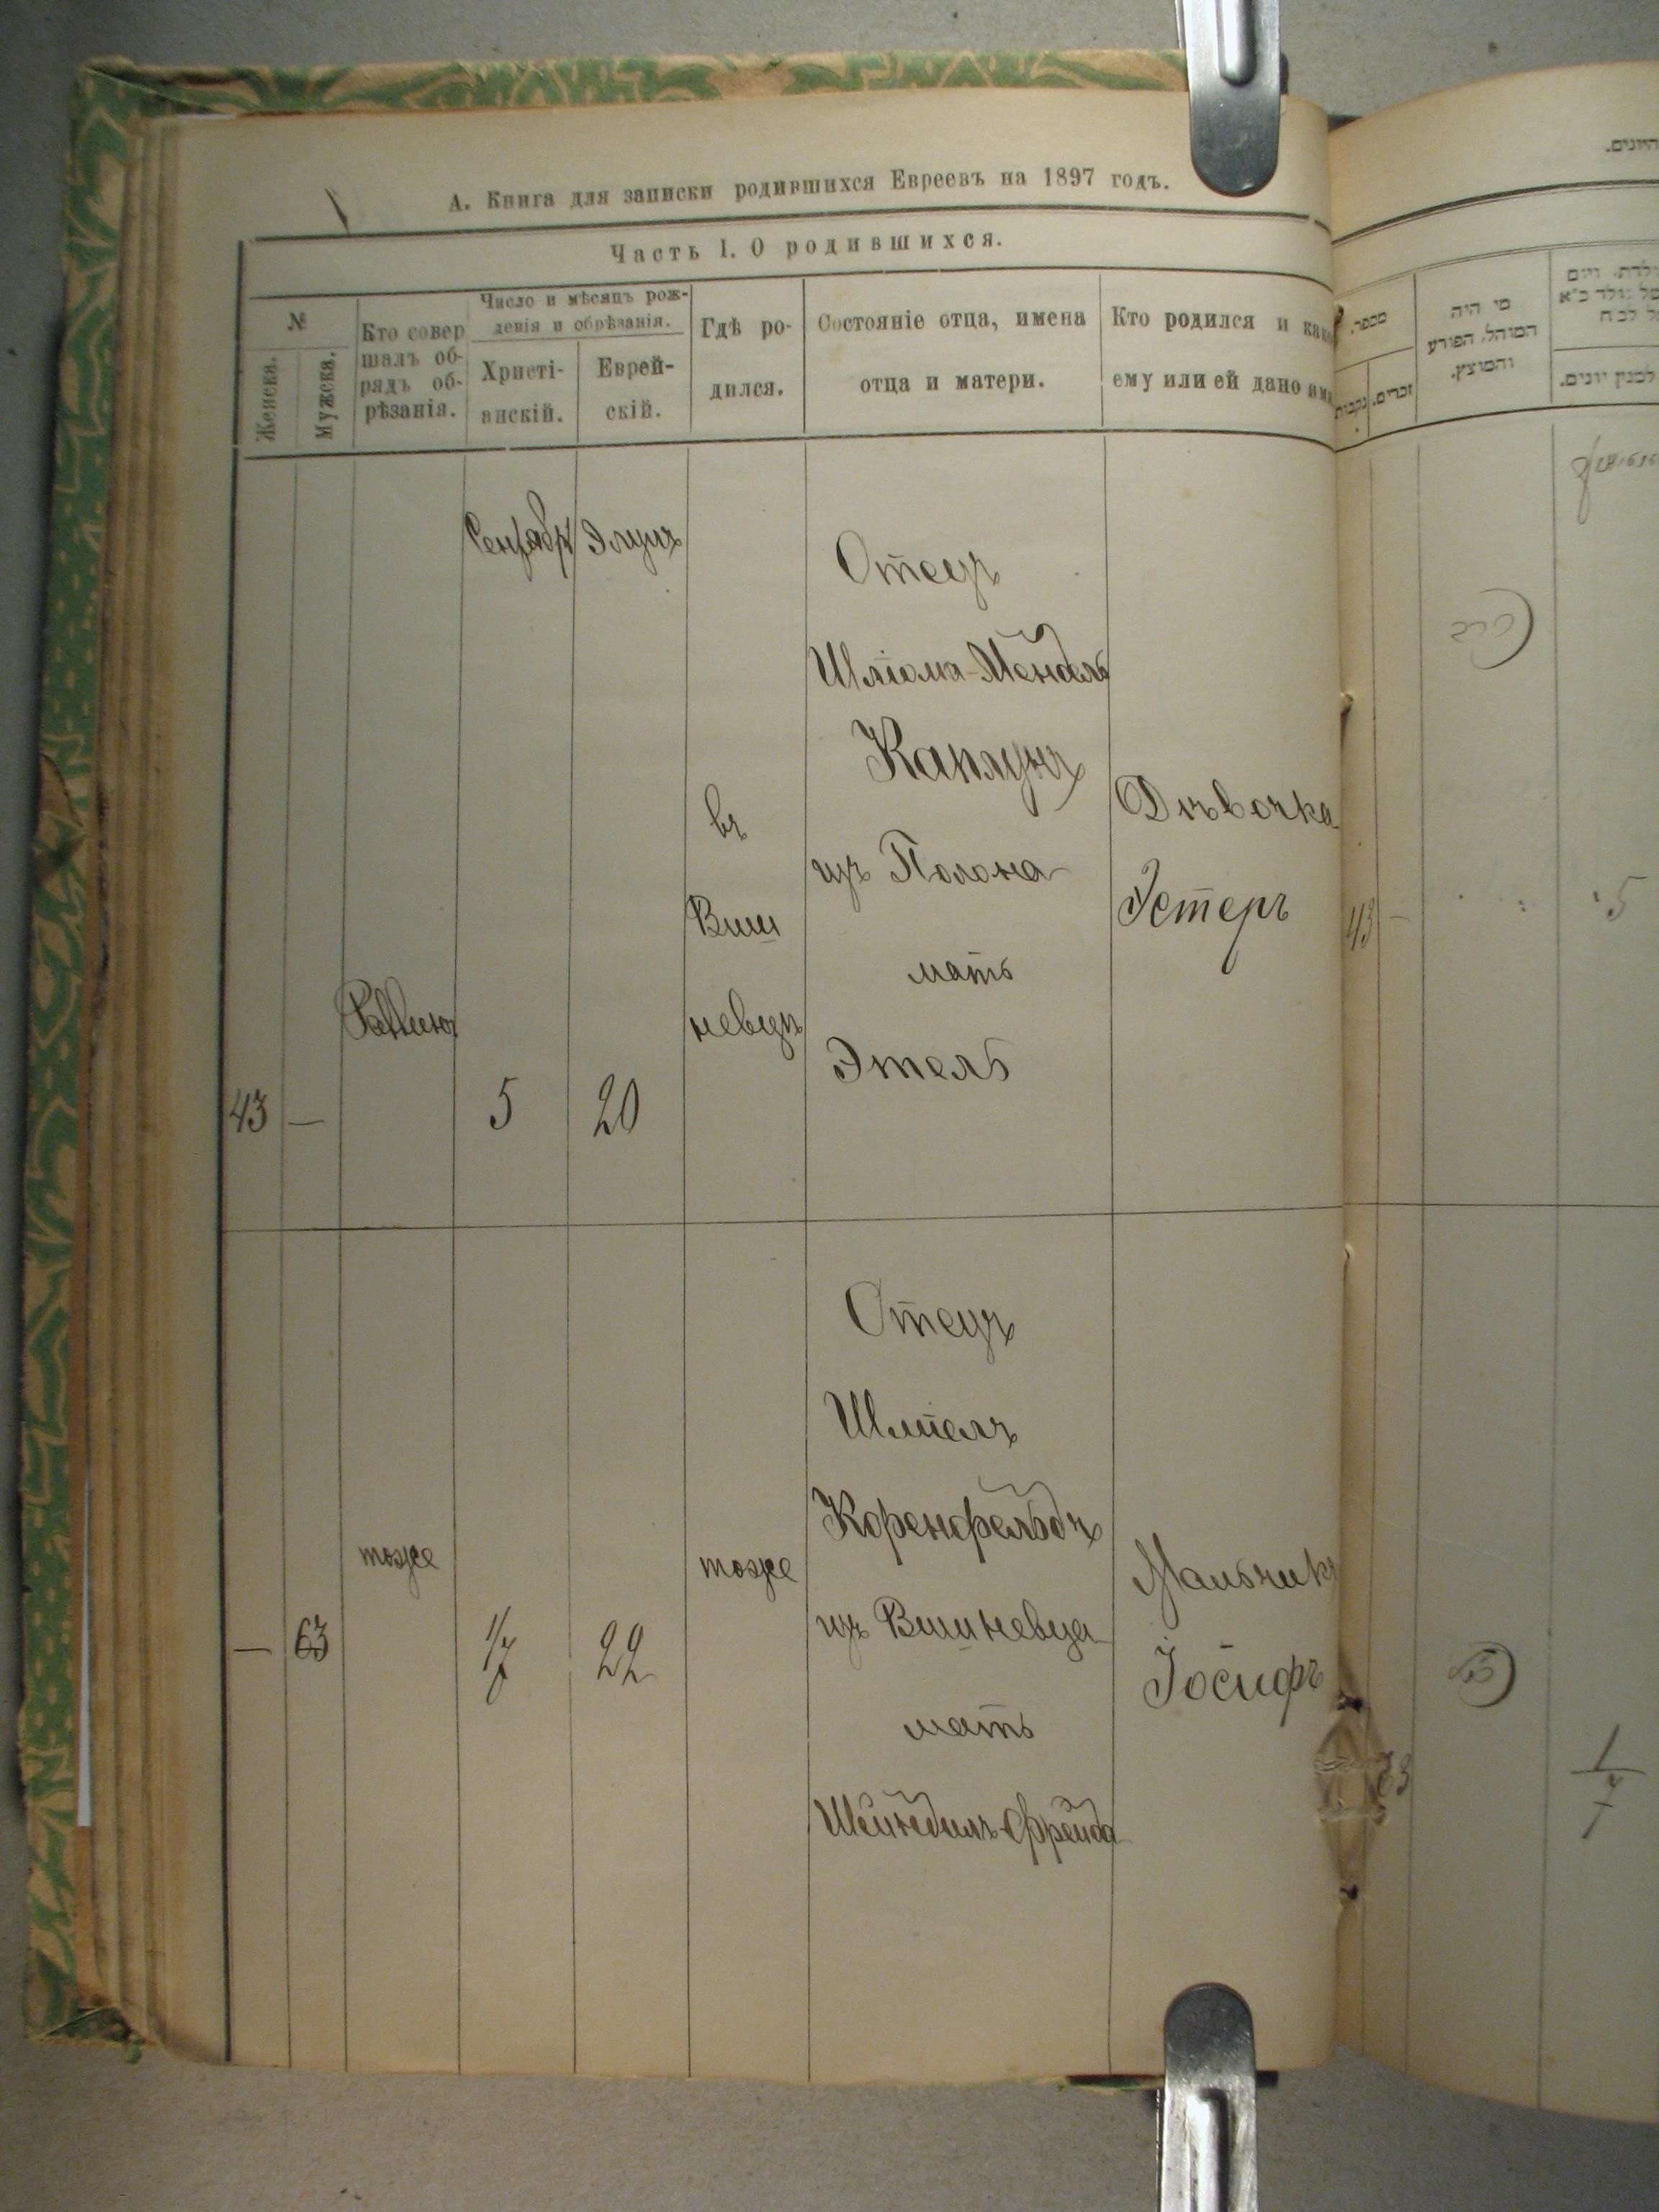 А. Книга для записки родившихся Евреевъ на 1897 годъ.
Часть 1. О родившихся.
№
Женска.
Мужска.
Кто совер
шалъ об-
рядъ об-
рѣзанія.
Число и мѣсяцъ рож-
денія и обрѣзанія.
Христі-
анскій.
Еврей-
скій.
Гдѣ ро-
дился.
Состояніе отца, имена
отца и матери.
Кто родился и како
ему или ей дано имя
Сентябрь Элулъ
43 — Раввинъ 5 20
въ
Виш
невцѣ
Отецъ
Шліома-Мендель
Каплунъ
изъ Полона
мать
Этель
Дѣвочка
Эстеръ
— 63 тоже 1/7 22 тоже
Отецъ
Шміелъ
Коренфельдъ
изъ Вишневца
мать
Шейндилъ-Фрейда
Мальчикъ
Іосифъ
היונים.
מספר.
נקבות
זכרים.
מי היה
המוהל, הפורע
והמוצץ.
ולדת, ויום
למנין יונים.
43 —
5
63
1/7